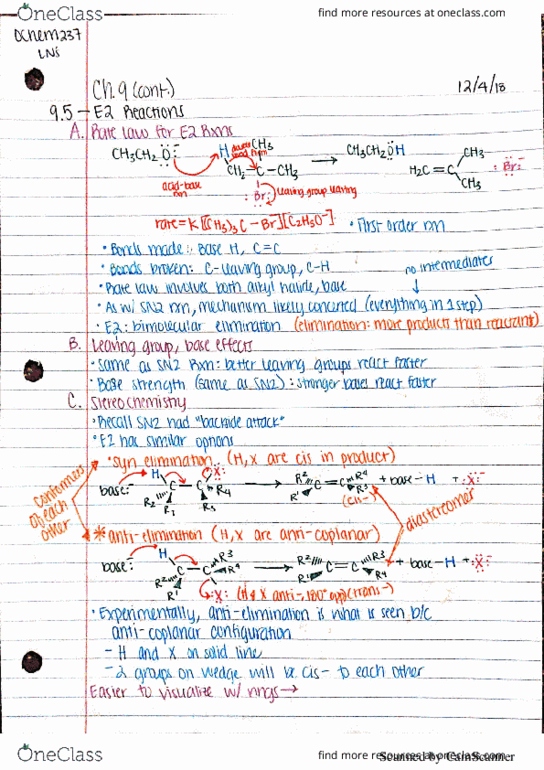 OneClass
find more resources at oneclass.com
OChem 237
LNS
Ch. 9 (cont.)
12/4/18
9.5 - E2 Reactions
A. Rate law for E2 Rxns
CH₃CH₂Ö:⁻
H
CH₃
CH₂-C-CH₃
:Br:
→ CH₃CH₂ÖH
H₂C=C
CH₃
CH₃
:Br:⁻
acid-base rxn
leaving group leaving
rate=K[(CH₃)₃C-Br][C₂H₅O⁻]
• First order rxn
• Bonds made: Base H, C=C
• Bonds broken: C-leaving group, C-H
no intermediates
• Rate law involves both alkyl halide, base
• As w/ SN2 rxn, mechanism likely concerted (everything in 1 step)
• E2: bimolecular elimination (elimination: more products than reactant)
B. Leaving group, base effects
• Same as SN2 Rxn: better leaving groups react faster
• Base strength (same as SN2): stronger bases react faster
C. Stereochemistry
• Recall SN2 had "backside attack"
• E2 has similar options
• syn elimination (H, X are cis in product)
conformers of each other
base:⁻
H
C-C
X:
R₂
R₁
R₄
R₃
→
R²
R¹
C=C
R⁴
R³
(cis-)
+ base-H + :X:⁻
diastereomer
* anti-elimination (H, X are anti-coplanar)
base:⁻
H
R²
R¹
C-C
R³
R⁴
→
R²
R¹
C=C
R³
R⁴
+ base-H + :X:⁻
:X: (H & X anti-, 180° opp)(trans-)
• Experimentally, anti-elimination is what is seen b/c
anti-coplanar configuration
- H and X on solid line
- 2 groups on wedge will be cis- to each other
Easier to visualize w/ rings →
OneClass
find more resources at oneclass.com
Scanned by CamScanner